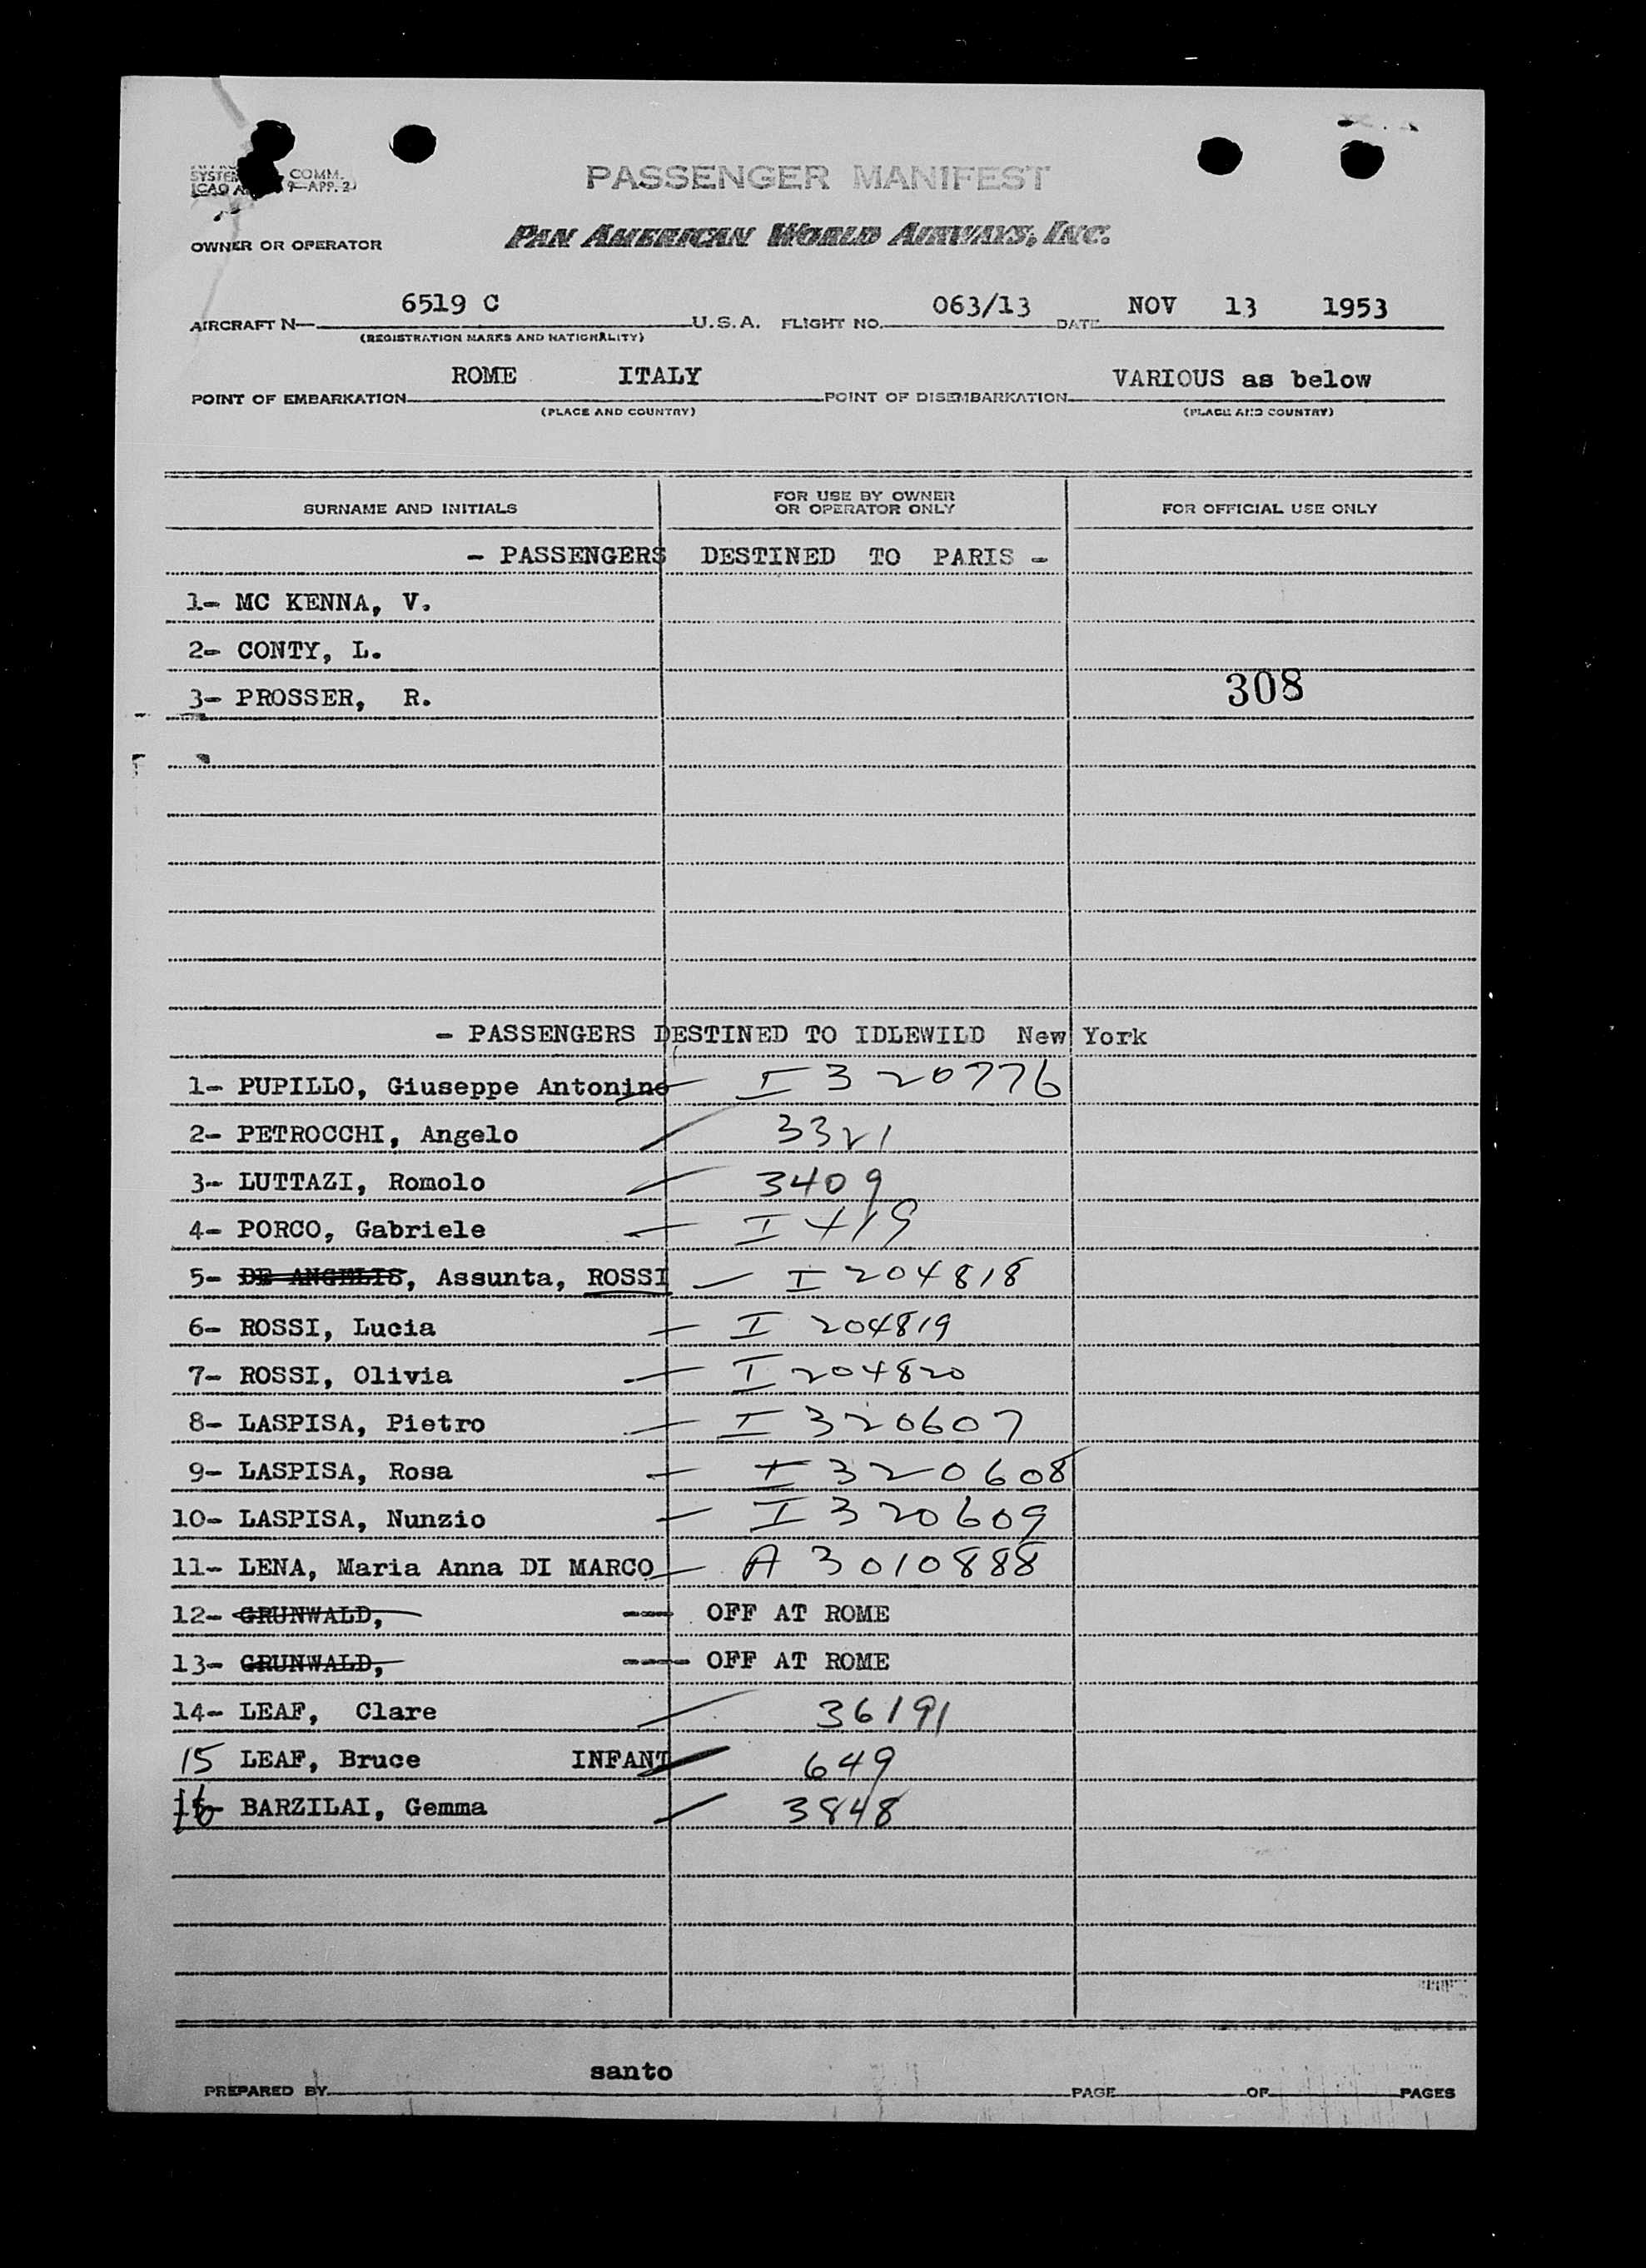 SYSTEM COMM.
ICAO A 9-APP. 2
PASSENGER MANIFEST
OWNER OR OPERATOR PAN AMERICAN WORLD AIRWAYS, INC.
AIRCRAFT N— 6519 C U.S.A. FLIGHT NO. 063/13 DATE NOV 13 1953
(REGISTRATION MARKS AND NATIONALITY)
POINT OF EMBARKATION ROME ITALY POINT OF DISEMBARKATION VARIOUS as below
(PLACE AND COUNTRY) (PLACE AND COUNTRY)
SURNAME AND INITIALS FOR USE BY OWNER OR OPERATOR ONLY FOR OFFICIAL USE ONLY
- PASSENGERS DESTINED TO PARIS -
1- MC KENNA, V.
2- CONTY, L.
3- PROSSER, R. 308
- PASSENGERS DESTINED TO IDLEWILD New York
1- PUPILLO, Giuseppe Antonino I 320776
2- PETROCCHI, Angelo 3321
3- LUTTAZI, Romolo 3409
4- PORCO, Gabriele I 419
5- DE ANGELIS, Assunta, ROSSI I 204818
6- ROSSI, Lucia I 204819
7- ROSSI, Olivia I 204820
8- LASPISA, Pietro I 320607
9- LASPISA, Rosa I 320608
10- LASPISA, Nunzio I 320609
11- LENA, Maria Anna DI MARCO A 3010888
12- GRUNWALD, --- OFF AT ROME
13- GRUNWALD, ---- OFF AT ROME
14- LEAF, Clare 36191
15 LEAF, Bruce INFANT 649
16 BARZILAI, Gemma 3848
santo
PREPARED BY PAGE OF PAGES